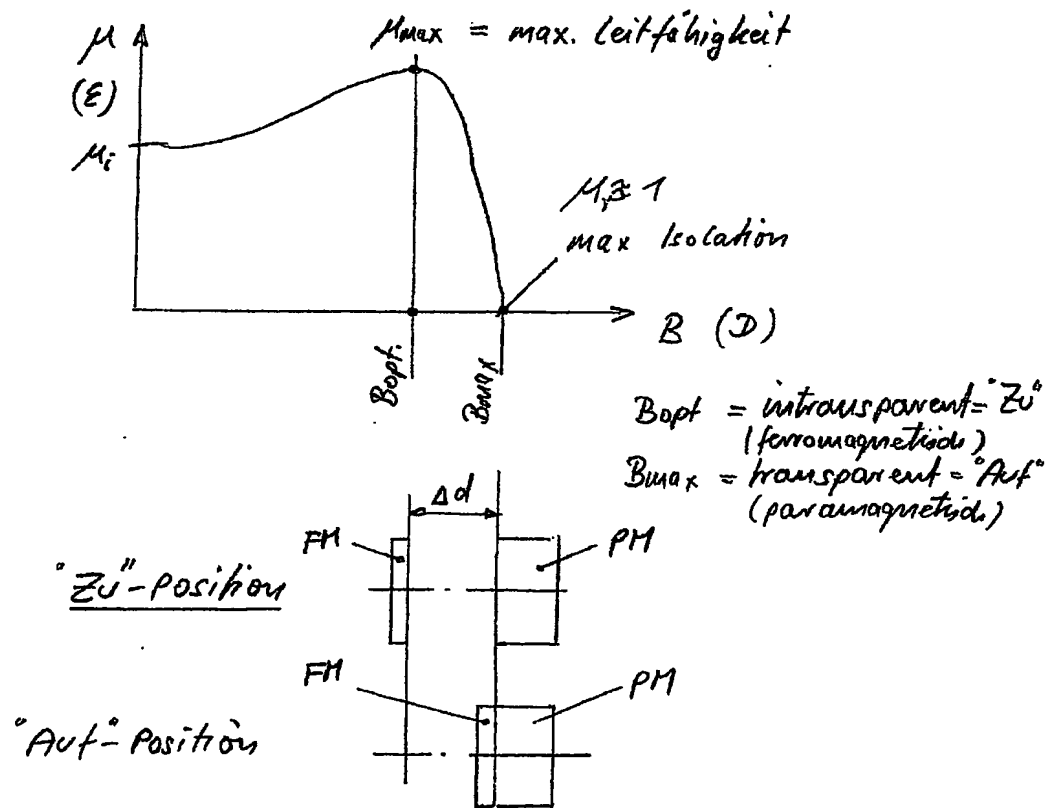 μmax = max. Leitfähigkeit
μ
(ε)
μi
μr ≈ 1
max Isolation
B (D)
Bopt.
Bmax
Bopt = intransparent = "Zu"
(ferromagnetisch)
Bmax = transparent = "Auf"
(paramagnetisch)
Δd
FM
PM
"Zu"-Position
FM
PM
"Auf"-Position